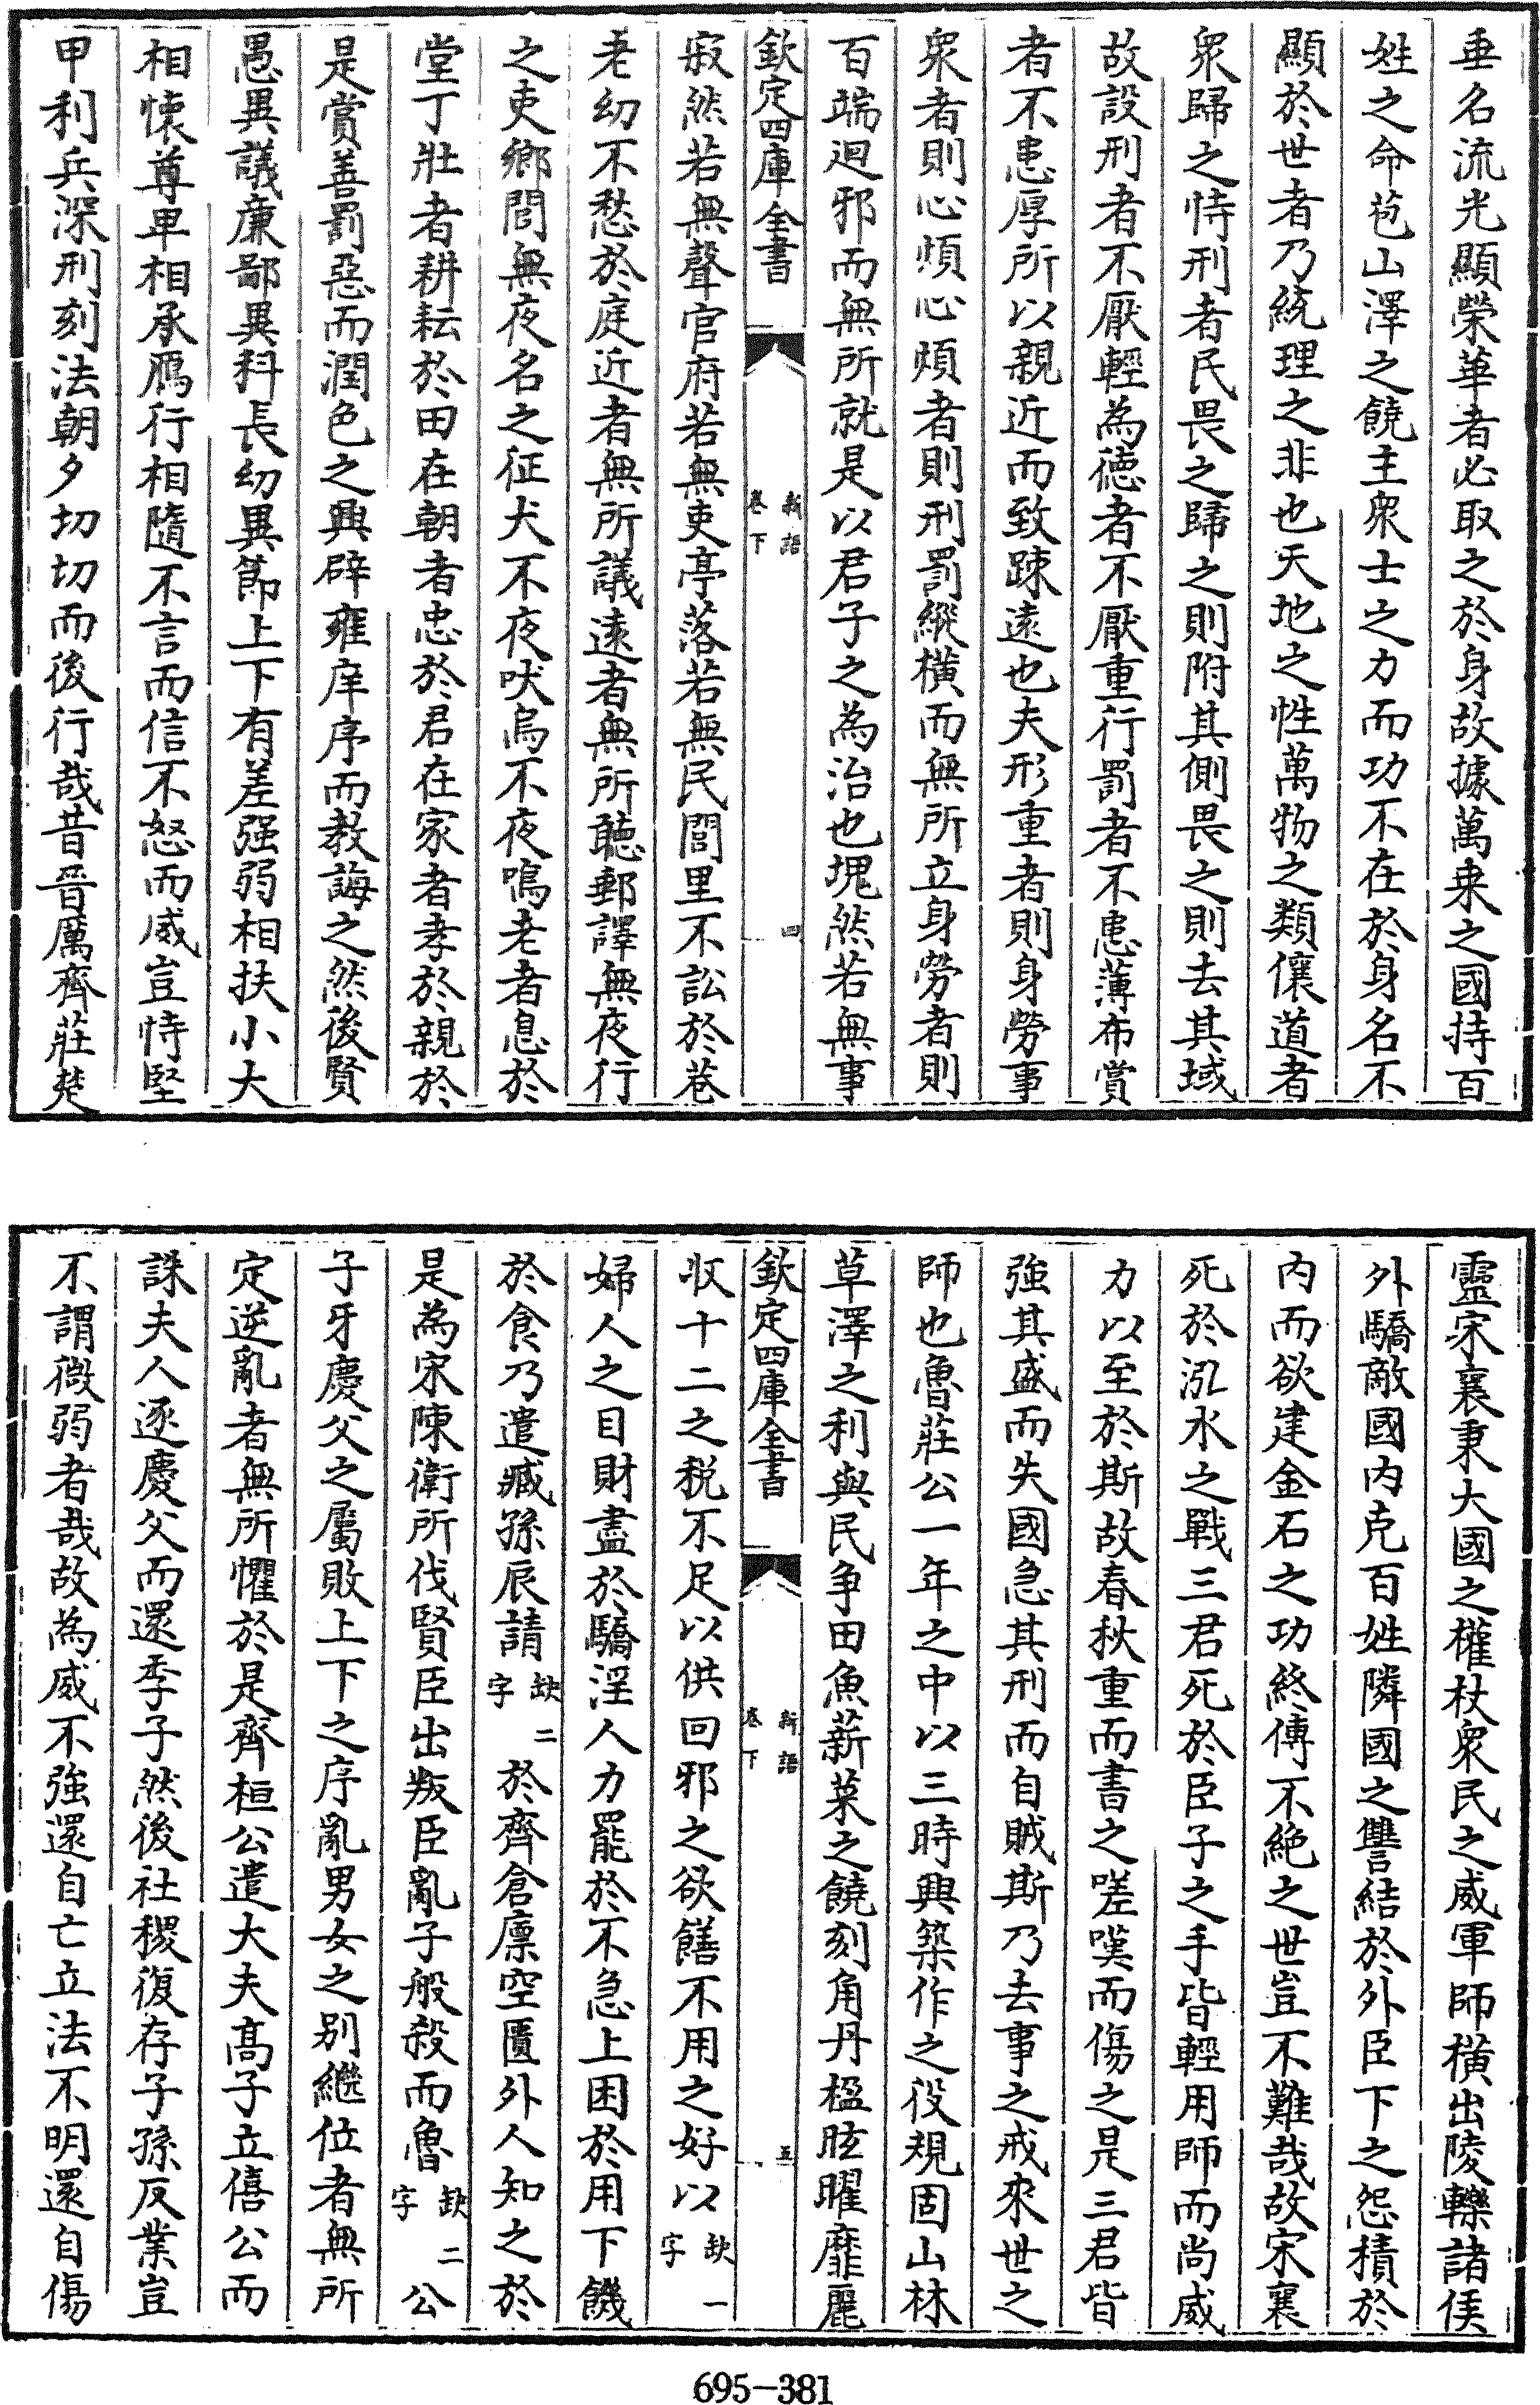 垂名流光顯榮華者必取之於身故據萬乗之國持百
姓之命苞山澤之饒主衆士之力而功不在於身名不
顯於世者乃統理之非也天地之性萬物之類儴道者
衆歸之恃刑者民畏之歸之則附其側畏之則去其域
故設刑者不厭輕為徳者不厭重行罰者不患薄布賞
者不患厚所以親近而致踈遠也夫形重者則身勞事
衆者則心煩心煩者則刑罰縱橫而無所立身勞者則
百端迴邪而無所就是以君子之為治也塊然若無事
欽定四庫全書 新語卷下 四
寂然若無聲官府若無吏亭落若無民閭里不訟於巷
老幼不愁於庭近者無所議遠者無所聴郵譯無夜行
之吏鄉閭無夜名之征犬不夜吠烏不夜鳴老者息於
堂丁壯者耕耘於田在朝者忠於君在家者孝於親於
是賞善罰惡而潤色之興辟雍庠序而教誨之然後賢
愚異議廉鄙異科長幼異節上下有差强弱相扶小大
相懐尊卑相承鴈行相隨不言而信不怒而威豈恃堅
甲利兵深刑刻法朝夕切切而後行哉昔晉厲齊莊楚
靈宋襄秉大國之權杖衆民之威軍師橫出陵轢諸侯
外驕敵國内克百姓隣國之讐結於外臣下之怨積於
内而欲建金石之功終傳不絶之世豈不難哉故宋襄
死於泓水之戰三君死於臣子之手皆輕用師而尚威
力以至於斯故春秋重而書之嗟嘆而傷之是三君皆
強其盛而失國急其刑而自賊斯乃去事之戒來世之
師也魯莊公一年之中以三時興築作之役規固山林
草澤之利與民争田魚薪菜之饒刻角丹楹眩曜靡麗
欽定四庫全書 新語卷下 五
收十二之税不足以供回邪之欲饍不用之好以缺一字
婦人之目財盡於驕淫人力罷於不急上困於用下饑
於食乃遣臧孫辰請缺二字於齊倉廪空匱外人知之於
是為宋陳衛所伐賢臣出叛臣亂子般殺而魯缺二字公
子牙慶父之屬敗上下之序亂男女之别繼位者無所
定逆亂者無所懼於是齊桓公遣大夫髙子立僖公而
誅夫人逐慶父而還季子然後社稷復存子孫反業豈
不謂微弱者哉故為威不強還自亡立法不明還自傷
695-381